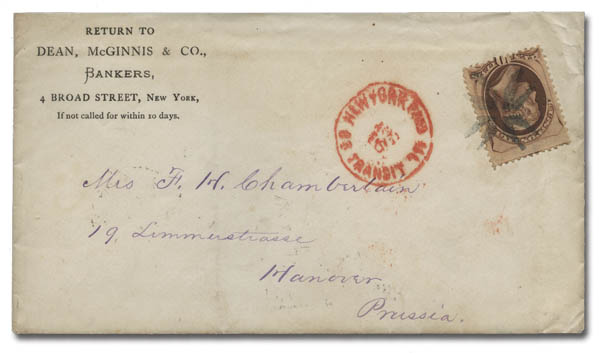 RETURN TO
DEAN, McGINNIS & CO.,
BANKERS,
4 BROAD STREET, NEW YORK,
If not called for within 10 days.
NEW YORK PAID
TRANSIT
Mrs F. W. Chamberlain
19, Limmerstrasse
Hanover
Prussia.